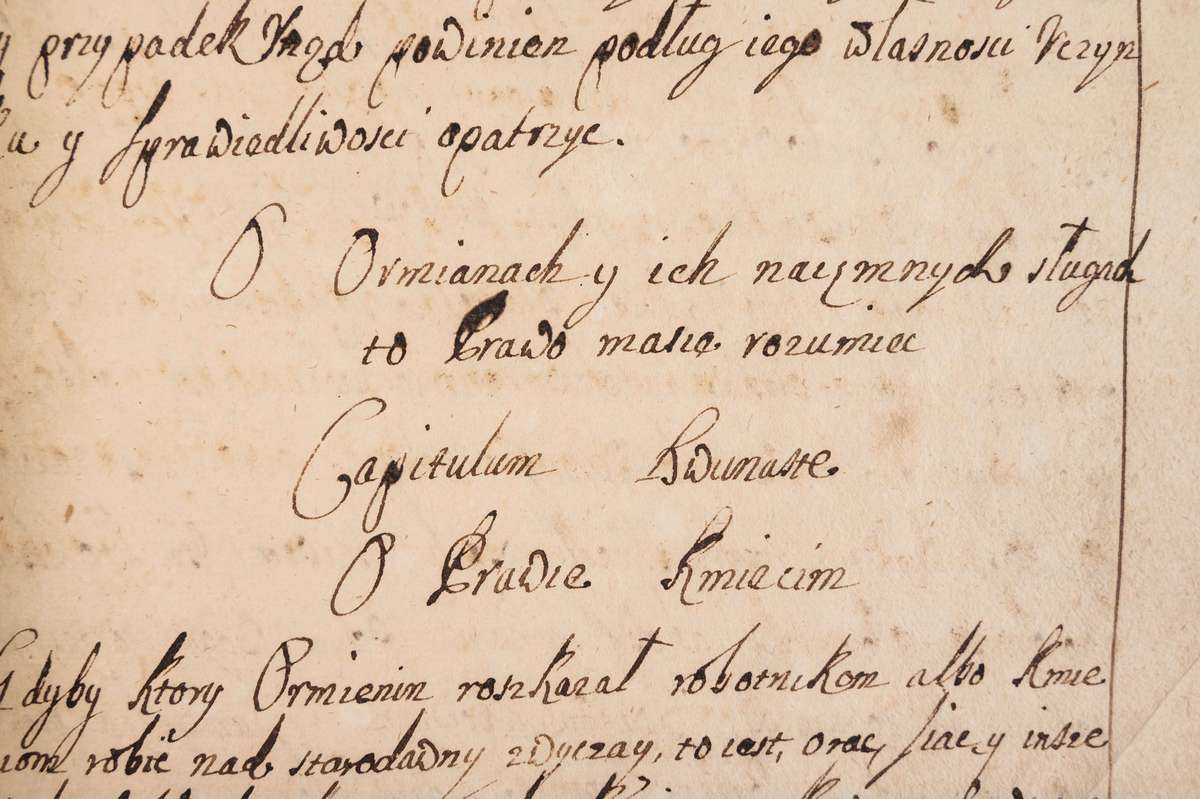 przypadek Vrząd powinien podług iego własnosci Vczyn
y Sprawiedliwosci opatrzyc.
O Ormianach y ich naięmnych sługach
to Prawo masię rozumiec
Capitulum Dwunaste
O Prawie Kmiecim
Gdyby ktory Ormienin roskazał robotnikom albo Kmie
ciom robić nad starodawny zwyczay, to iest, orac, siac, y insze